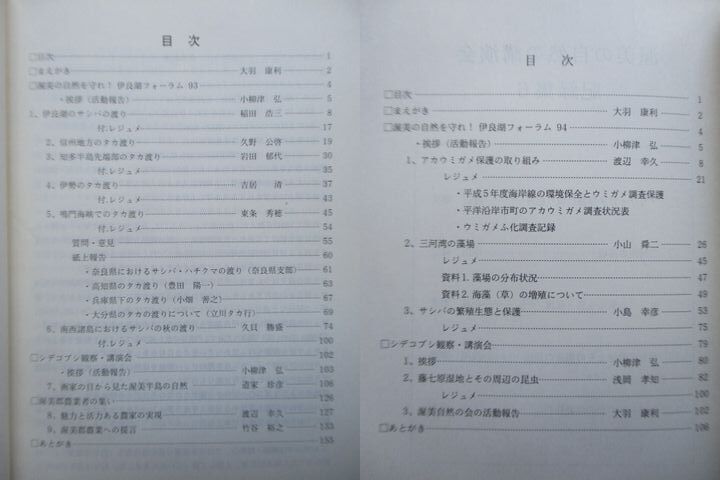 目次
□目次 1
□まえがき 大羽 康利 2
□渥美の自然を守れ! 伊良湖フォーラム 93 4
・挨拶(活動報告) 小柳津 弘 5
1、伊良湖のサシバの渡り 稲田 浩三 8
付.レジュメ 17
2、信州地方のタカ渡り 久野 公啓 19
3、知多半島先端部のタカ渡り 岩田 郁代 30
付.レジュメ 35
4、伊勢のタカ渡り 吉居 清 37
付.レジュメ 43
5、鳴門海峡でのタカ渡り 東条 秀徳 45
付.レジュメ 54
質問・意見 55
紙上報告 60
・奈良県におけるサシバ・ハチクマの渡り(奈良県支部) 61
・高知県のタカ渡り(豊田 陽一) 63
・兵庫県下のタカ渡り(小畑 善之) 67
・大分県のタカの渡りについて(立川タカ行) 69
6、南西諸島におけるサシバの秋の渡り 久貝 勝盛 74
付.レジュメ 100
□シデコブシ観察・講演会 102
・挨拶 小柳津 弘 103
7、画家の目から見た渥美半島の自然 道家 珍彦 106
□渥美郡農業者の集い 126
8、魅力と活力ある農家の実現 渡辺 幸久 127
9、渥美郡農業への提言 竹谷 裕之 133
□あとがき 155
目次
□目次 1
□まえがき 大羽 康利 2
□渥美の自然を守れ! 伊良湖フォーラム 94 4
・挨拶(活動報告) 小柳津 弘 5
1、アカウミガメ保護の取り組み 渡辺 幸久 8
レジュメ 21
・平成5年度海岸線の環境保全とウミガメ調査保護
・太平洋沿岸市町のアカウミガメ調査状況表
・ウミガメふ化調査記録
2、三河湾の藻場 小山 舜二 26
レジュメ 45
資料1.藻場の分布状況 47
資料2.海藻(草)の増殖について 49
3、サシバの繁殖生態と保護 小島 幸彦 53
レジュメ 75
□シデコブシ観察・講演会 79
1、挨拶 小柳津 弘 80
2、藤七原湿地とその周辺の昆虫 浅岡 孝知 82
レジュメ 100
3、渥美自然の会の活動報告 大羽 康利 102
□あとがき 106